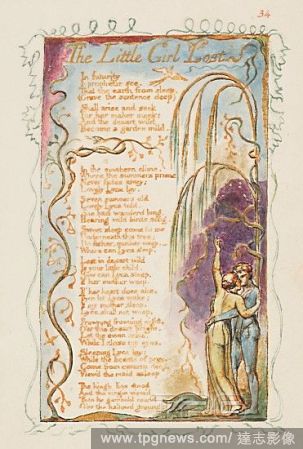 34
The Little Girl Lost
In futurity
I prophetic see,
That the earth from sleep,
(Grave the sentence deep)
Shall arise and seek
For her maker meek:
And the desart wild
Become a garden mild.
In the southern clime,
Where the summers prime,
Never fades away;
Lovely Lyca lay.
Seven summers old
Lovely Lyca told,
She had wanderd long,
Hearing wild birds song.
Sweet sleep come to me
Underneath this tree;
Do father, mother weep.
Where can Lyca sleep.
Lost in desart wild
Is your little child.
How can Lyca sleep,
If her mother weep.
If her heart does ake,
Then let Lyca wake;
If my mother sleep,
Lyca shall not weep.
Frowning frowning night,
O'er this desart bright,
Let thy moon arise,
While I close my eyes.
Sleeping Lyca lay;
While the beasts of prey,
Come from caverns deep,
View'd the maid asleep
The kingly lion stood
And the virgin view'd,
Then he gambold round
O'er the hallowd ground:
www.tpgnews.com/ 達志影像